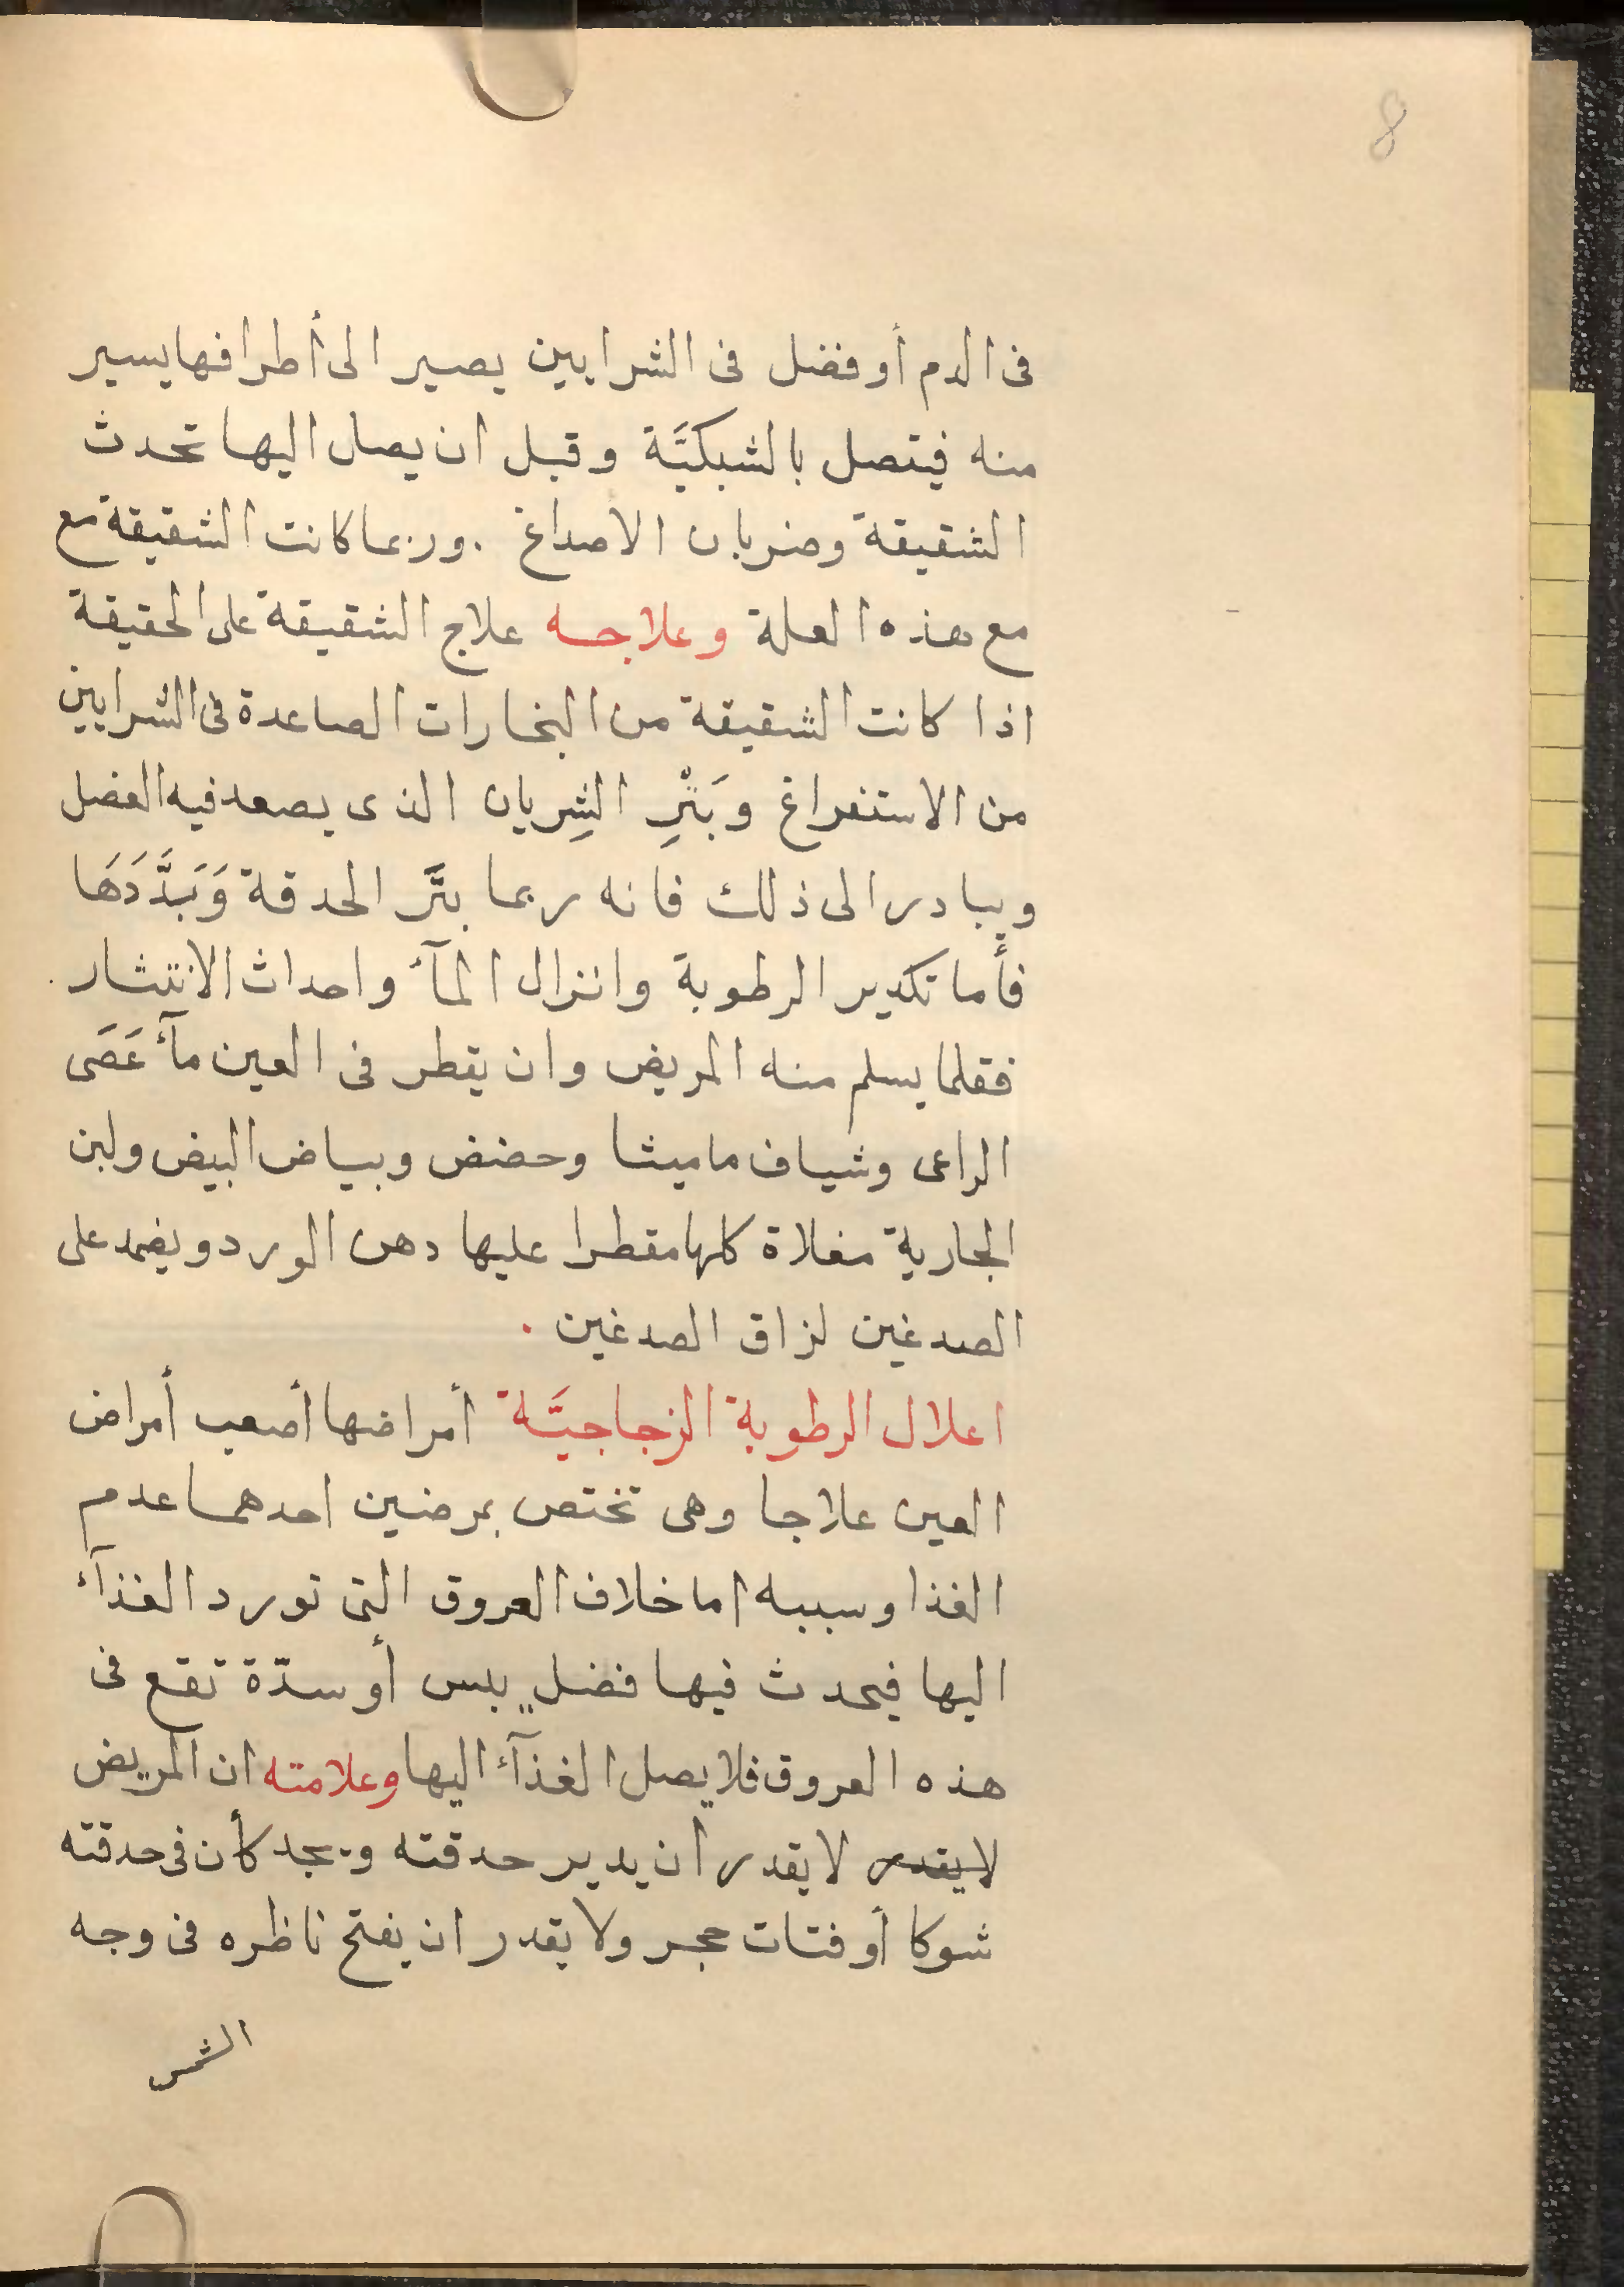 8
فى الدم أو فضل فى الشرايين يصير الى أطرافها يسير
منه فيتصل بالشبكيَّة وقبل ان يصل اليها تحدث
الشقيقة وضربان الاصداغ . وربما كانت الشقيقة مع
مع هذه العلة وعلاجه علاج الشقيقة على الحقيقة
اذا كانت الشقيقة من البخارات الصاعدة فى الشرايين
من الاستفراغ وبَتْرِ الشِريان الذى يصعد فيه الفضل
ويبادر الى ذلك فانه ربما بتَّر الحدقة وَبَدَّدَهَا
فأما تكدير الرطوبة وانزال المآء واحداث الانتشار .
فقلما يسلم منه المريض وان يقطر فى العين مآء عَصَى
الراعى وشياف ماميثا وحضض وبياض البيض ولبن
الجارية مغلاة كلها مقطرا عليها دهن الورد ويضمد على
الصدغين لزاق الصدغين .
اعلال الرطوبة الزجاجيَّة أمراضها أصعب أمراض
العين علاجا وهى تختص بمرضين احدهما عدم
الغذا وسببه اما خلاف العروق التى تورد الغذآء
اليها فيحدث فيها فضل يبس أو سدّة تقع فى
هذه العروق فلا يصل الغذآء اليها وعلامته ان المريض
لا يقدر لا يقدر ان يدير حدقته ويجد كأن فى حدقته
شوكا أو فتات حجر ولا يقدر ان يفتح ناظره فى وجه
الشمس